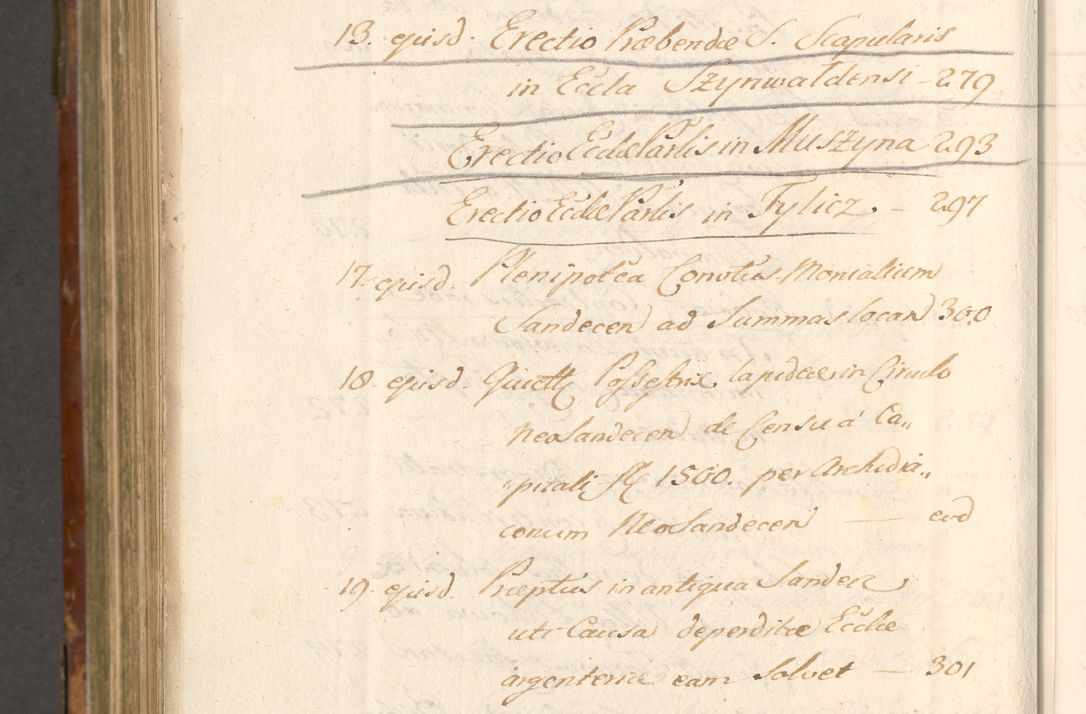 13. ejusd. Erectio Præbendæ S. Scapularis
in Eccla Szynwałdensi - 279
Erectio Ecclæ Parlis in Muszyna 293
Erectio Ecclæ Parlis in Tylicz. - 297
17. ejusd. Plenipotea Convtus Monialium
Sandecen ad Summas locan 300
18. ejusd. Quiett Possestrix lapideæ in Circulo
Neosandecen de Censu á Ca„
pitali fl 1500. per Archidia„
conum Neosandecen — eod
19. ejusd. Præptus in antiqua Sandecz
uti Causa deperditæ Ecclæ
argenteriæ eam Solvet — 301